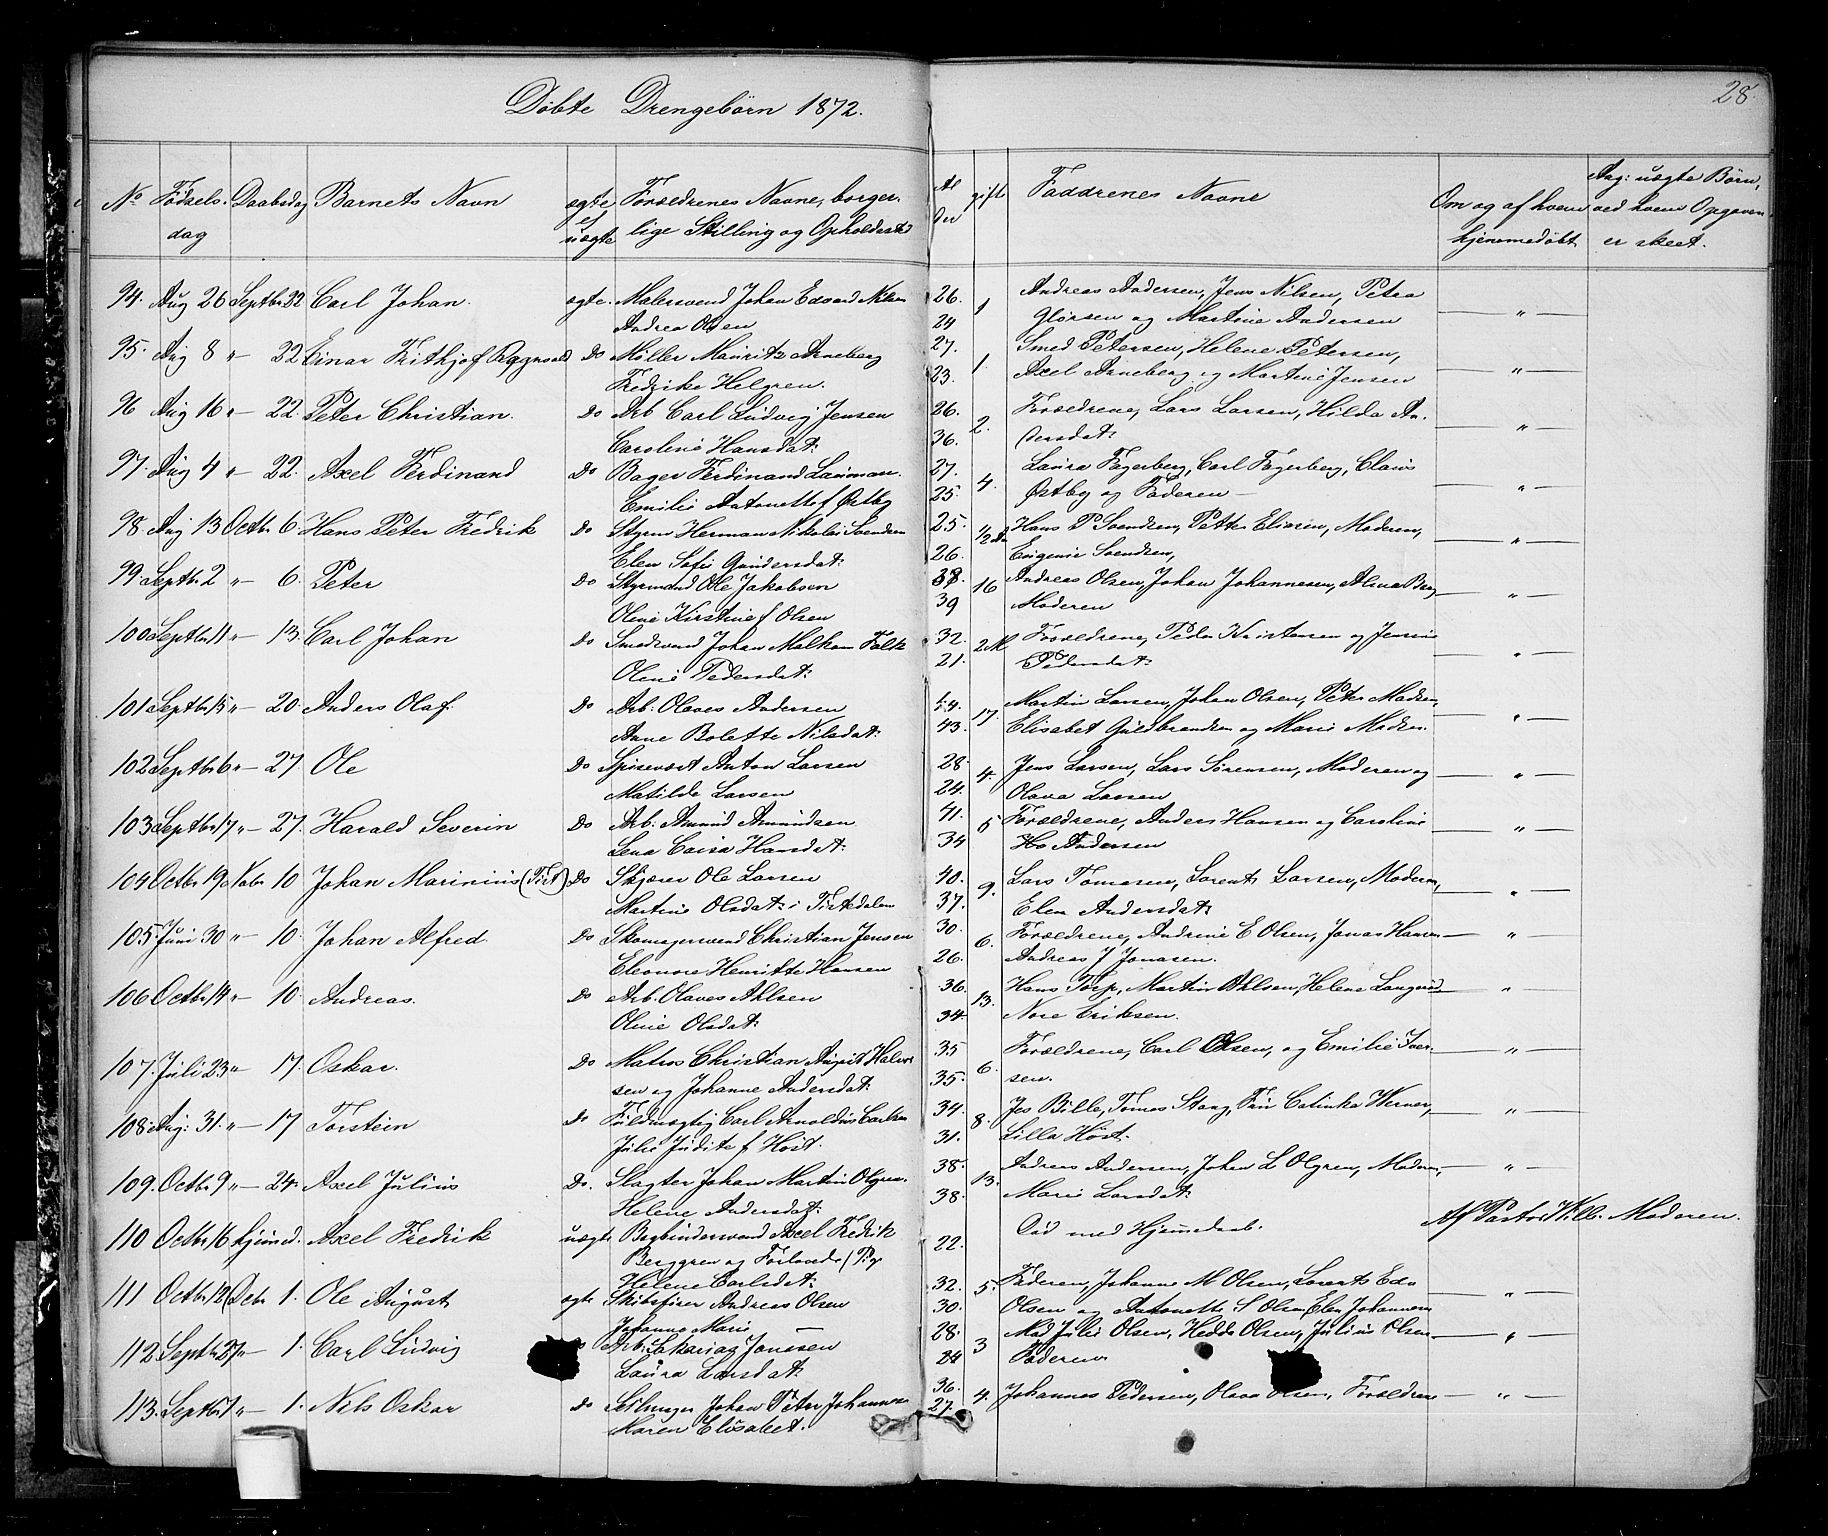 28.
Döbte Drengebörn 1872.
No Födsels- dag Daabsdag Barnets Navn ægte el uægte Forældrenes Navne, borger- lige Stilling og Opholdssted Al der gift Faddrenes Navne Om og af hvem hjemmedöbt Ang: uægte Börn, ved hvem Opgaven er skeet.
94. Aug 26 Septbr 22 Carl Johan. ægte. Malersvend Johan Edvard Nilsen 26. 1 Andreas Andersen, Jens Nilsen, Petra — " —
Andrea Olsen 24 og Martine Andersen
95. Aug 8 " — 22 Einar Frithjof Do Möller Mauritz Arneberg 27. 1. Smed Petersen, Helene Petersen, — " —
Fredrike Helgren. 23. Axel Arneberg og Martine Jensen
96 Aug 16 " — 22. Peter Christian. Do Arb. Carl Ludvig Jensen 26. 2. Forældrene, Lars Larsen, Hilda An- — " —
Caroline Hansdat: 36. dersdat:
97. Aug 4 " — 22. Axel Ferdinand Do Bager Ferdinand Lauman. 27. 4. Laura Fagerberg, Carl Fagerberg, Claus — " —
Emilie Antonette f Østby 25. Østby og Faderen —
98. Aug 13 Octbr 6. Hans Peter Fredrik Do Styrm Herman Nikolai Svendsen 25. 1/2 Hans P Svendsen, Petter Eliasen, Moderen, — " —
Elen Sofie Gundersdat: 26. Eugenie Svendsen,
99. Septbr 2 " — 6. Peter Do Styrmand Ole Jakobsen 38. 16 Andreas Olsen, Johan Johannesen, Alma Berg — " —
Oline Kirstine f Olsen 39 Moderen
100. Septbr 11 " — 13. Carl Johan Do Smedsvend Johan Malkom Falk 32. 2 M Forældrene, Peder Kristensen og Jensine — " —
Oline Pedersdat: 21. Pedersdat:
101. Septbr 15 " — 20. Anders Olaf. Do Arb. Olaves Andersen 54. 17. Martin Larsen, Johan Olsen, Peter Madsen, — " —
Anne Bolette Nilsdat: 43. Elisabet Guldbrandsen og Marie Madsen.
102 Septbr 6 " — 27 Ole Do Spisevært Anton Larsen 28. 4. Jens Larsen, Lars Sörensen, Moderen og — " —
Matilde Larsen 24. Olava Larsen
103. Septbr 17 " — 27. Harald Severin Do Arb. Amund Amundsen 41. 5 Forældrene, Anders Hansen og Caroline — " —
Lena Caisa Hansdat: 34 Andersen
104 Octbr 19 Novbr 10 Johan Marinius (Tist) Do Skjærer Ole Larsen 40. 9. Lars Tomasen, Lorents Larsen, Moderen, — " —
Martine Olsdat: i Tistedalen 37. Elen Andersdat:
105. Juni 30 " — 10. Johan Alfred. Do Skomagersvend Christian Jensen 30. 6. Forældrene, Andrine E Olsen, Jonas Hansen — " —
Eleonore Henriette Hansen 26. Andreas J Jonasen.
106 Octbr 14 " — 10. Andreas. Do Arb. Olaves Ahlsen 36. 13. Hans Torp, Martin Ahlsen, Helene — " —
Oline Olsdat: 34. Nore Eriksen.
107. Juli 23 " — 17. Oskar. Do Matros Christian August Halvor 35 6. Forældrene, Carl Olsen, og Emilie Iver- — " —
sen og Johanne Andersdat: 35. sen.
108. Aug: 31. " — 17 Torstein Do Fuldmægtig Carl Arnoldus Carlsen 34. 8. Jes Bille, Tomes Stang, Frü Catinka Werner, — " —
Julie Judite f Höst. 31. Lilla Höst.
109. Octbr 9 " — 24. Axel Julius Do. Slagter Johan Martin Olgren. 38. 13. Andreas Andersen, Johan L Olgren, Moderen, — " —
Helene Andersdat: 38. Marie Larsdat:
110 Octbr 16 hjemmed. Axel Fredrik uægte Bogbindersvend Axel Fredrik 22. Död med Hjemmedaab. Af Pastor Moderen.
Berggren og Forlovede (Pige
Helene Carlsdat:
111 Octbr 12 Decbr 1. Ole August ægte Skibsförer Andreas Olsen 32. 5. Faderen, Johanne M Olsen, Lorents Edv — " —
Johanne Marie — 30. Olsen og Antonette S Olsen, Elen Johannesen
112. Septbr 27 " — 1. Carl Ludvig Do Arb. Sakarias Jonssen 28. 3 Mad Julie Olsen, Hedde Olsen, Julius Olsen — " —
Laura Larsdat: 24 Faderen
113. Septbr 7 " — 1. Nils Oskar Do Johan Peter Johannesen 36. 4. Johannes Pedersen, Olava Olsen, Forældrene — " —
Maren Elisabet. 27.